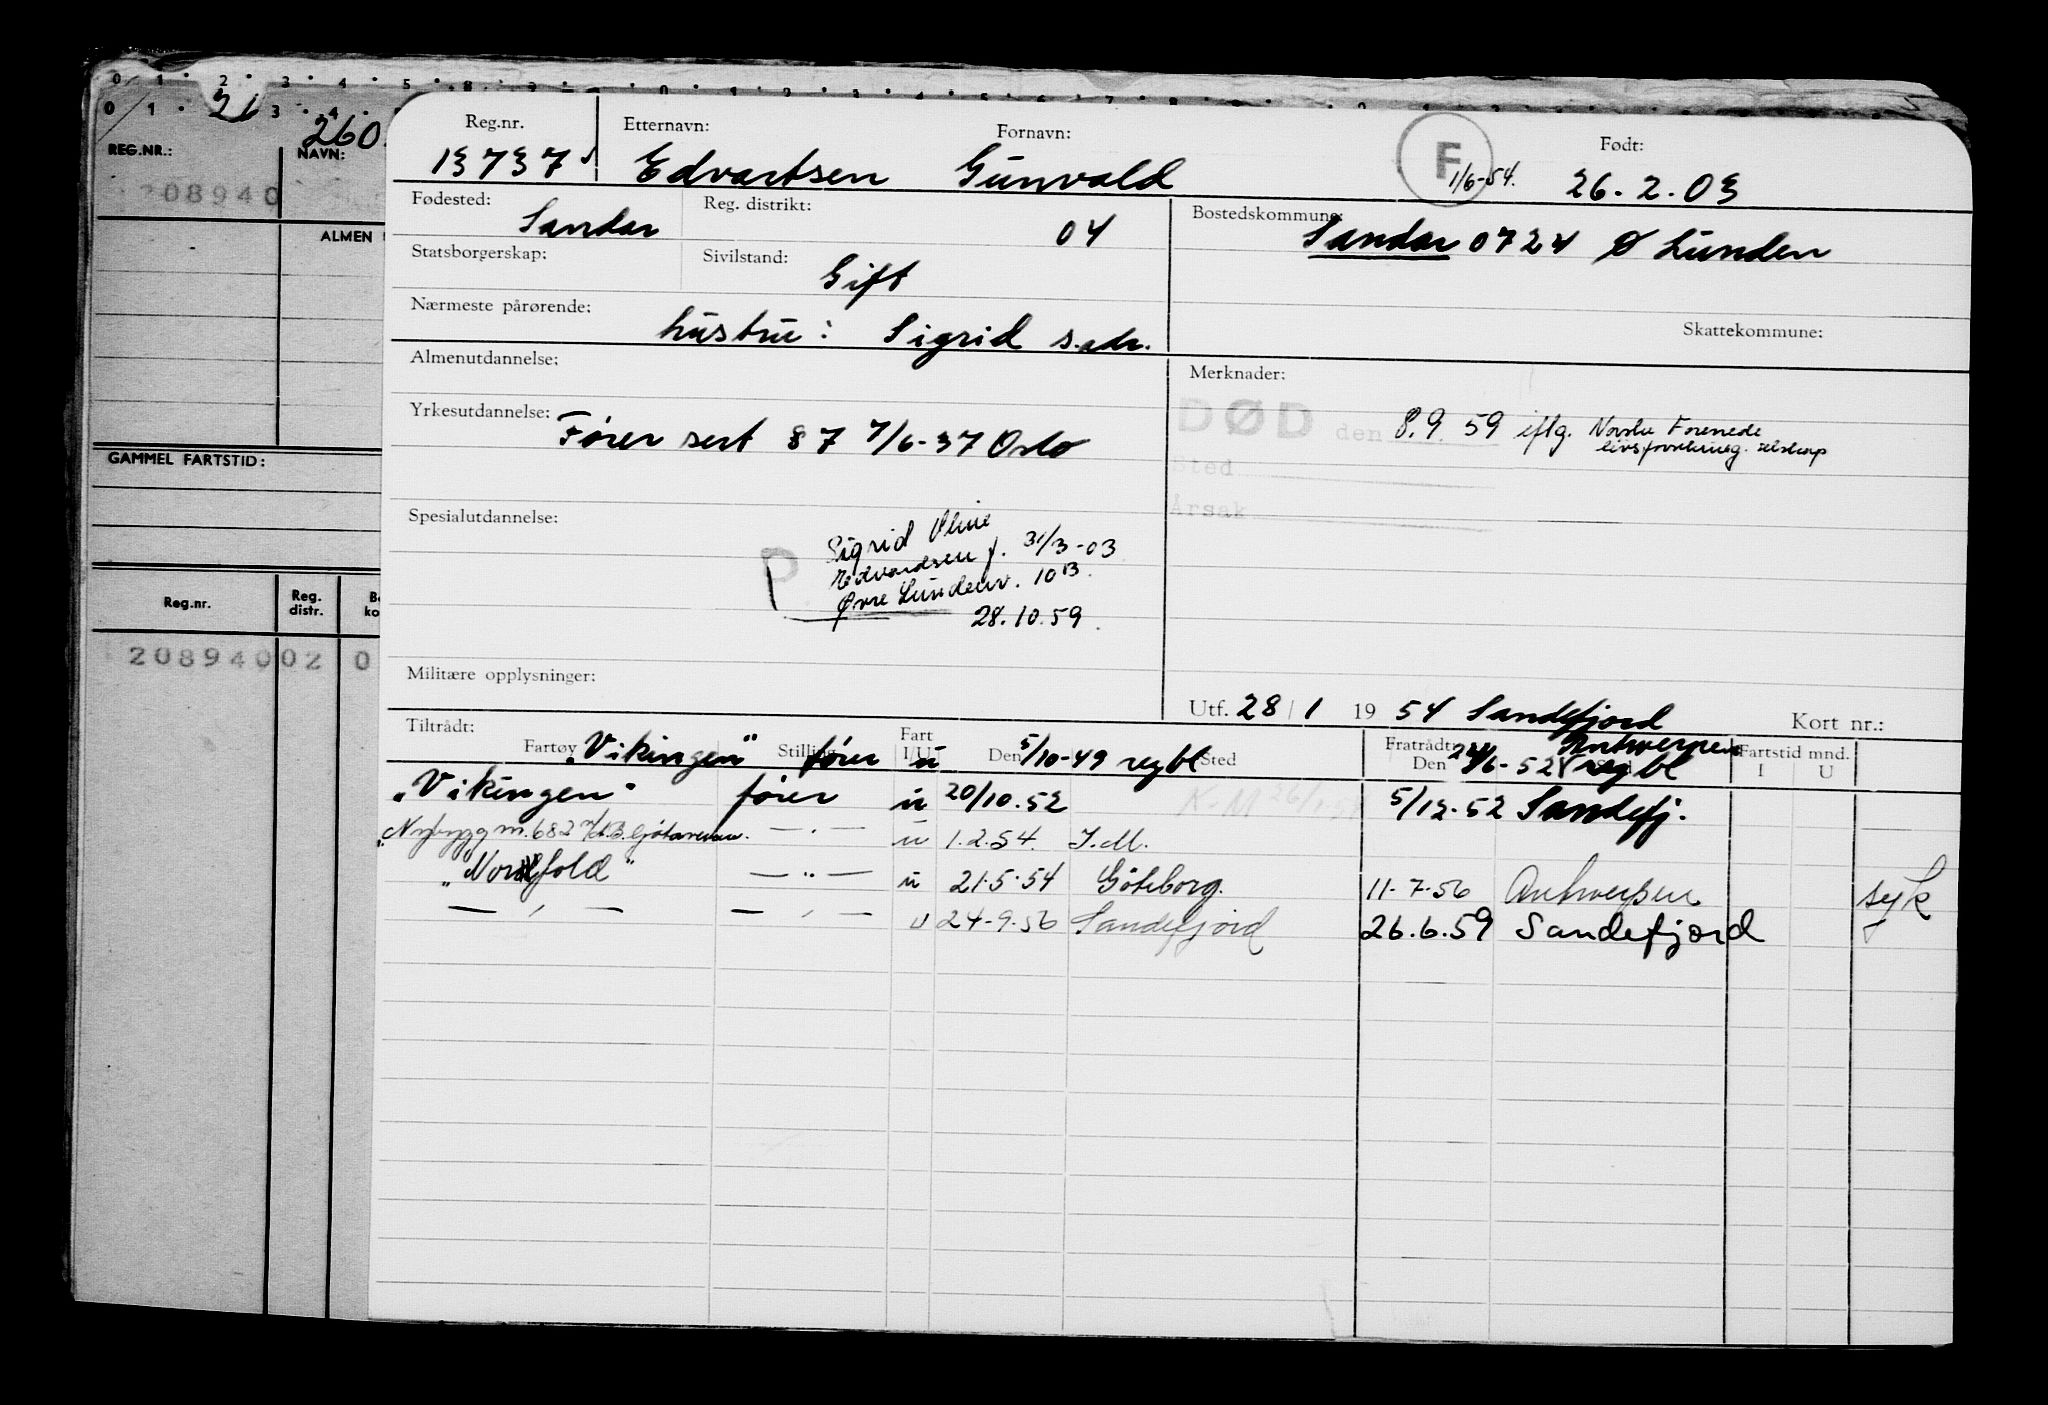 0 1 2 3 4 5
0 1 21 3 4
260
REG.NR.: NAVN:
208940
ALMEN
GAMMEL FARTSTID:
Reg.nr. Reg. distr.
208940 02 0
Reg.nr. Etternavn: Fornavn: Født:
13737 Edvartsen Gunvald F 1/6-54. 26.2.03
Fødested: Reg. distrikt: Bostedskommune:
Sandar 04 Sandar 0724 Ø Lunden
Statsborgerskap: Sivilstand:
Gift
Nærmeste pårørende: Skattekommune:
hustru: Sigrid s.adr.
Almenutdannelse: Merknader:
Yrkesutdannelse: DØD den 8.9.59 iflg. Norske Forenede
Fører sert 87 7/6-37 Oslo livsforsikring. selskap
Sted
Årsak
Spesialutdannelse:
P Sigrid Oline
Edvardsen f. 31/3-03
Øvre Lundenv. 10B.
28.10.59.
Militære opplysninger:
Utf. 28/1 1954 Sandefjord Kort nr.:
Tiltrådt: Fratrådt: Antwerpen Fartstid mnd.
Fartøy Stilling Fart I/U Den Sted Den I U
"Vikingen" fører u 5/10-49 regbl 24/6-52 regbl
"Vikingen" fører u 20/10.52 5/12.52 Sandefj.
"Nybygg nr. 682 — . — u 1.2.54. I.M.
"Norsfold" — " — u 21.5.54 Göteborg. 11-7-56 Antwerpen syk
— , — — , — u 24-9-56 Sandefjord 26.6.59 Sandefjord